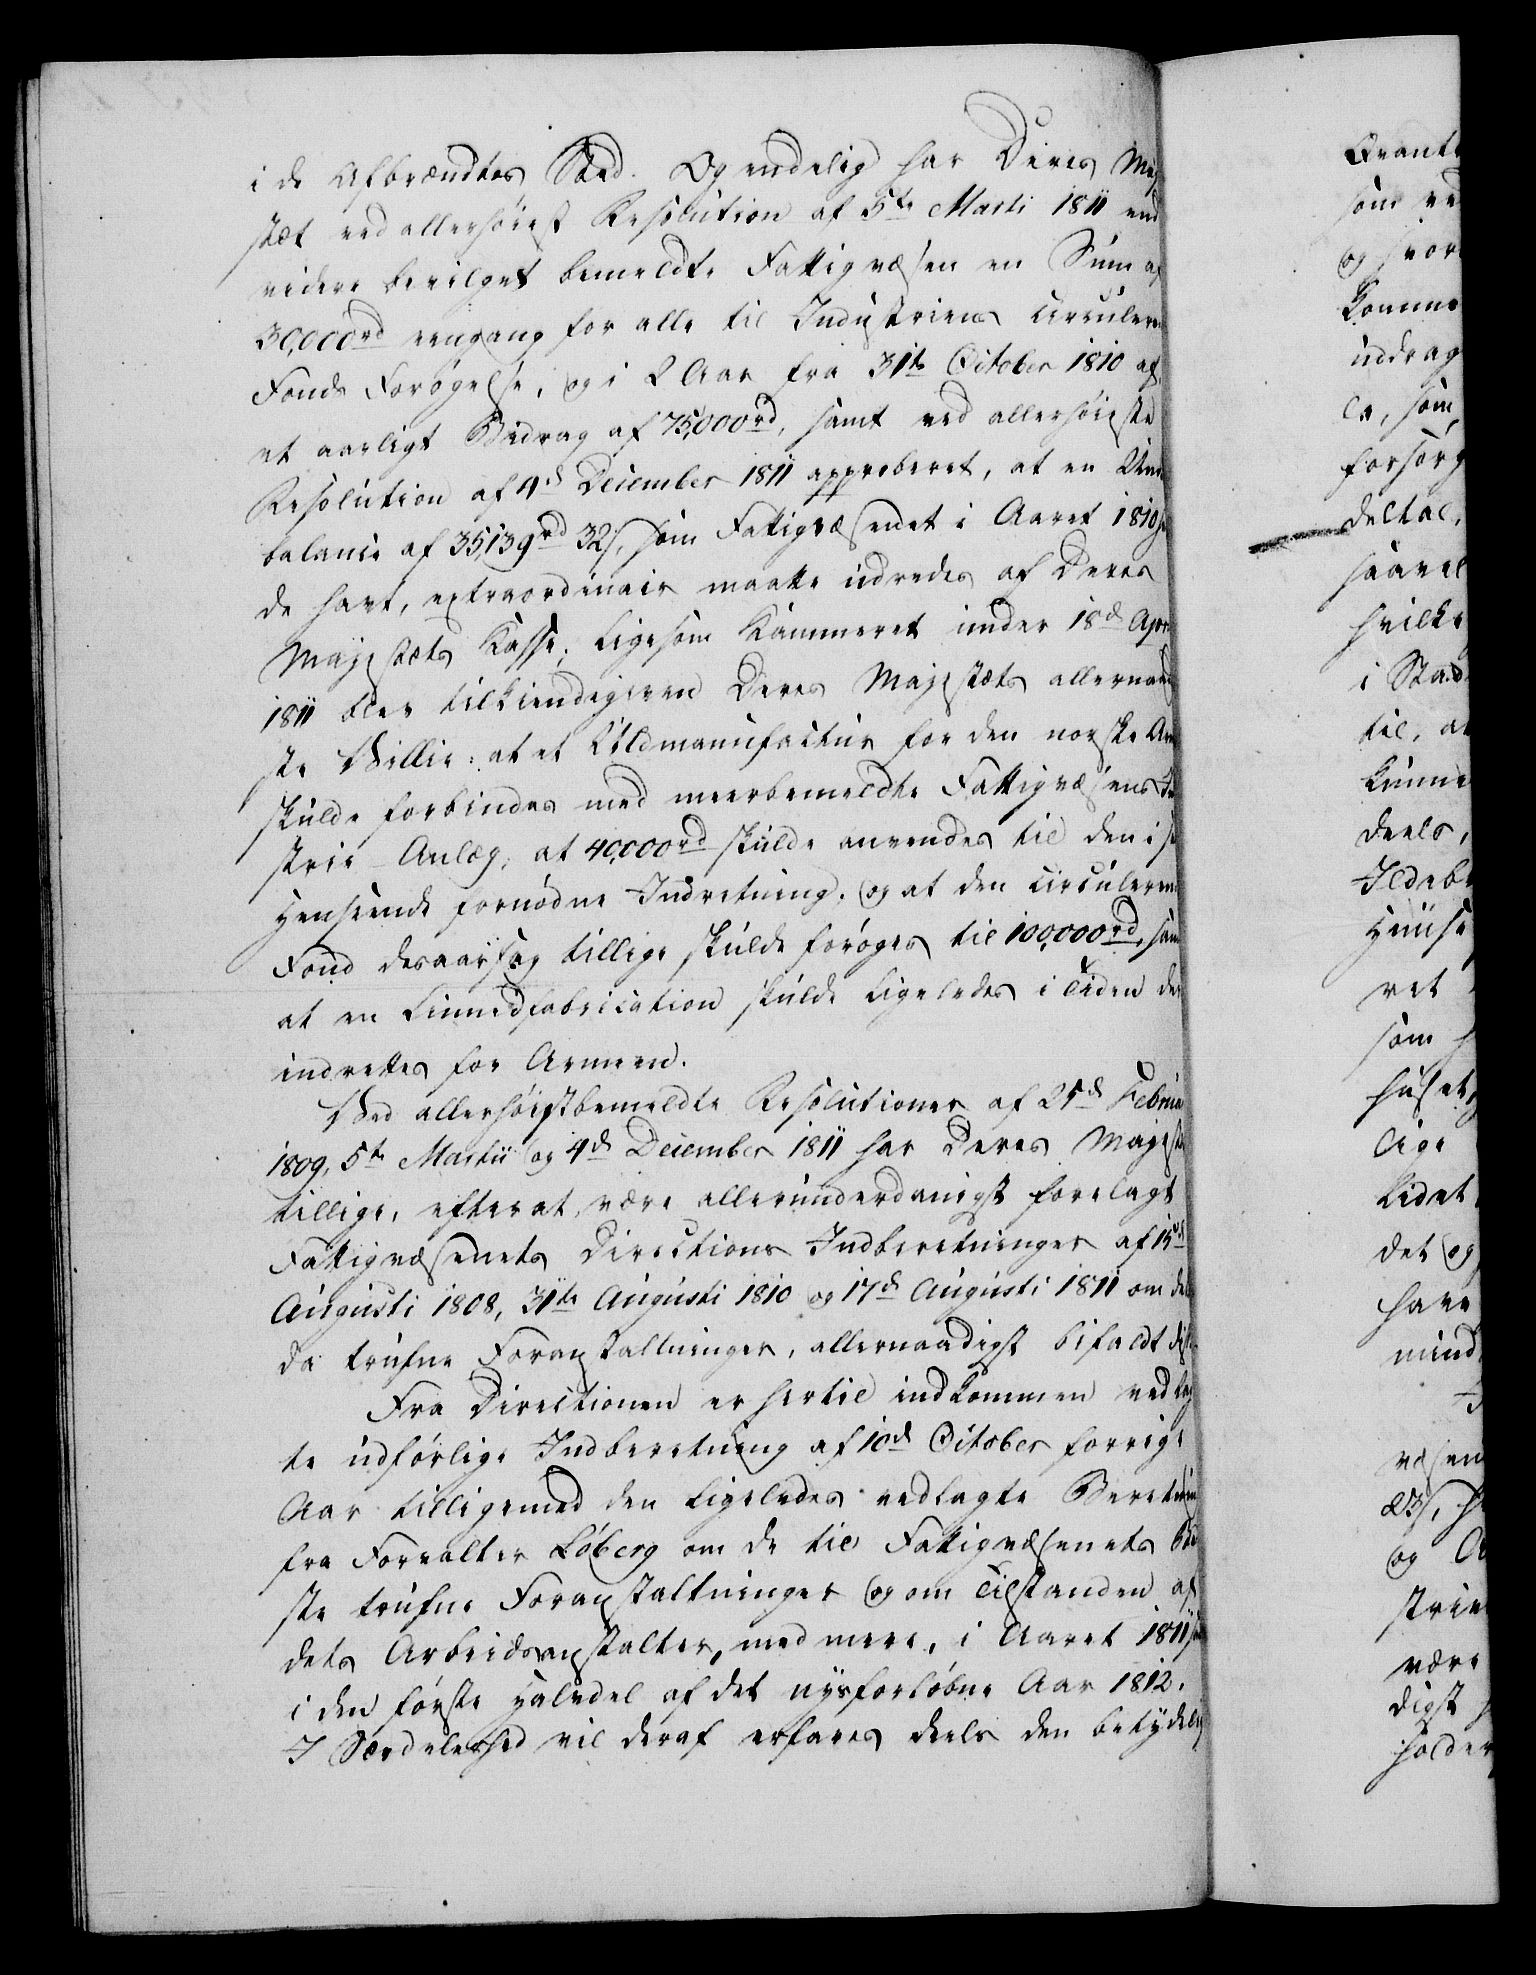 i de Afbrændtes Sted. Og endelig har Deres Maj
stæt ved allerhøiest Resolution af 5te Marti 1811 end
videre bevilget bemeldte Fattigvæsen en Sum af
30,000rd eengang for alle til Industriens circuleren
Fonds Forøgelse, og i 2 Aar fra 31te October 1810 af
et aarligt Bidrag af 75,000rd, samt ved allerhøieste
Resolution af 4d December 1811 approberet, at en Un
balance af 35,139rd 32s, som Fattigvæsenet i Aaret 1810 ha
de havt, extraordinair maatte udredes af Deres
Majestæts Kasse; ligesom Kammeret under 18d Apr
1811 blev tilkiendegiven Deres Majestæts allernaadig
ste Villie: at et Uldmanufactur for den norske Arm
skulde forbindes med meerbemeldte Fattigvæsens In
strie-Anlæg; at 40,000rd skulde anvendes til den i
Henseende fornødne Indretning, og at den circuleren
Fond desaarsag tillige skulde forøges til 100,000rd, sam
at en Linnedfabrication skulde ligeledes i Tiden der
indrettes for Armeen.
Ved allerhøistbemeldte Resolutioner af 25d Februa
1809, 5te Martii og 4d December 1811 har Deres Majestæ
tillige, efterat være allerunderdanigst forelagt
Fattigvæsenets Directions Indberetninger af 15d
Augusti 1808, 31te Augusti 1810 og 17d Augusti 1811 om de
da trufne Foranstaltninger, allernaadigst bifaldt dis
Fra Directionen er hertil indkommen vedlag
te udførlige Indberetning af 10d October forrige
Aar tilligemed den ligeledes vedlagte Beretning
fra Forvalter Løberg om de til Fattigvæsenets Bed
ste trufne Foranstaltninger og om Tilstanden af
dets Arbeidsanstalter, med mere, i Aaret 1811 sa
i den første Halvdel af det nysforløbne Aar 1812.
I Særdeleshed vil deraf erfares deels den betydelig
som ve
og hvor
komme
uddrag
le, som
forsørg
deltal,
saavel
hvilke
i Stad
til, at
kunne
deels,
Ildebr
Huuse
ret
som h
huset,
lige
lidet
det og
have
mind
væsen
23s, h
og A
strie
være
digst h
holder